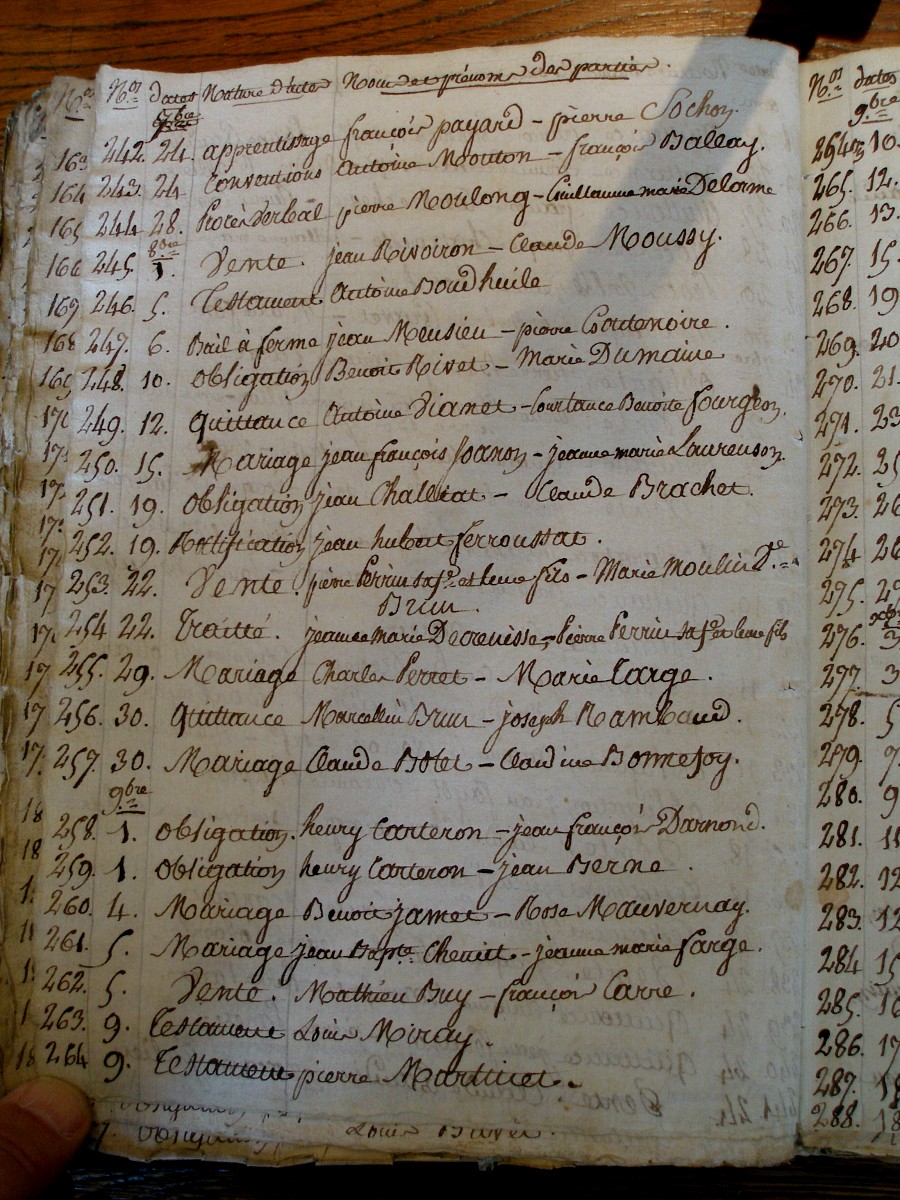 N.os dates Nature d'actes Noms et prénoms des parties.
7bre
242. 24. apprentissage françois payard - pierre Sochon.
243. 24 Conventions Antoine Mouton - françois Ballay.
244 28. Procès Verbal pierre Moulong - Guillaume marie Delorme
8bre
245. 1. Vente. jean Rivoiron - Claude Moussy.
246. 5. Testament Antoine Boudheile
247. 6. Bail à ferme jean Meusieu - pierre Coutenoire.
248. 10. Obligation Benoit Rivet - Marie Dumaine
249. 12. Quittance Antoine Vianet - Constance Benoite fourgeon.
250. 15. Mariage jean françois Joanon - jeanne marie Laurenson.
251. 19. Obligation jean Chaletat - Claude Brachet.
252. 19. Ratification jean hubert ferroussat.
253. 22. Vente. pierre Perrin sa fe. et leur fils - Marie Moulin De.
Brun.
254 22. Traitté. jeanne marie Decrenisse - Pierre Perrin sa fe et leur fils
255. 29. Mariage Charles Perret - Marie Large.
256. 30. Quittance Marcellin Brun - joseph Rambaud.
257. 30. Mariage Claude Bolet - Claudine Bonnefoy.
9bre
258. 1. Obligation. henry Carteron - jean françois Darnond.
259. 1. Obligation henry Carteron - jean Berne.
260. 4. Mariage Benoit jamet - Rose Mauvernay.
261. 5. Mariage jean Bapte. - jeanne marie farge.
262. 5. Vente. Mathieu Buy - françois Carre.
263. 9. Testament Louis Miray.
264 9. Testament pierre Martinet.
Louis
N.os dates
9bre
264 10.
265. 12.
266. 13.
267. 15.
268. 19
269. 20
270. 21.
271. 23
272. 25
273. 26
274 26
275. 29
xbre
276. 3
277. 3
278. 5
279. 7
280. 9
281. 11
282. 12
283. 12
284 15
285. 16
286. 17
287. 18
288. 18